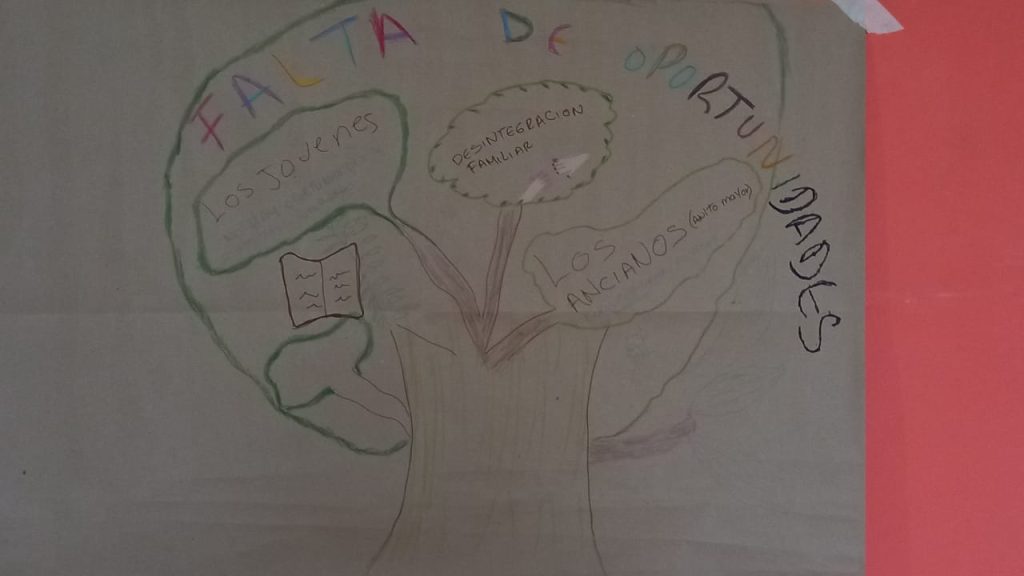 FALTA DE OPORTUNIDADES
LOS JOVENES
DESINTEGRACION
FAMILIAR
LOS
ANCIANOS (AULTO mayor)